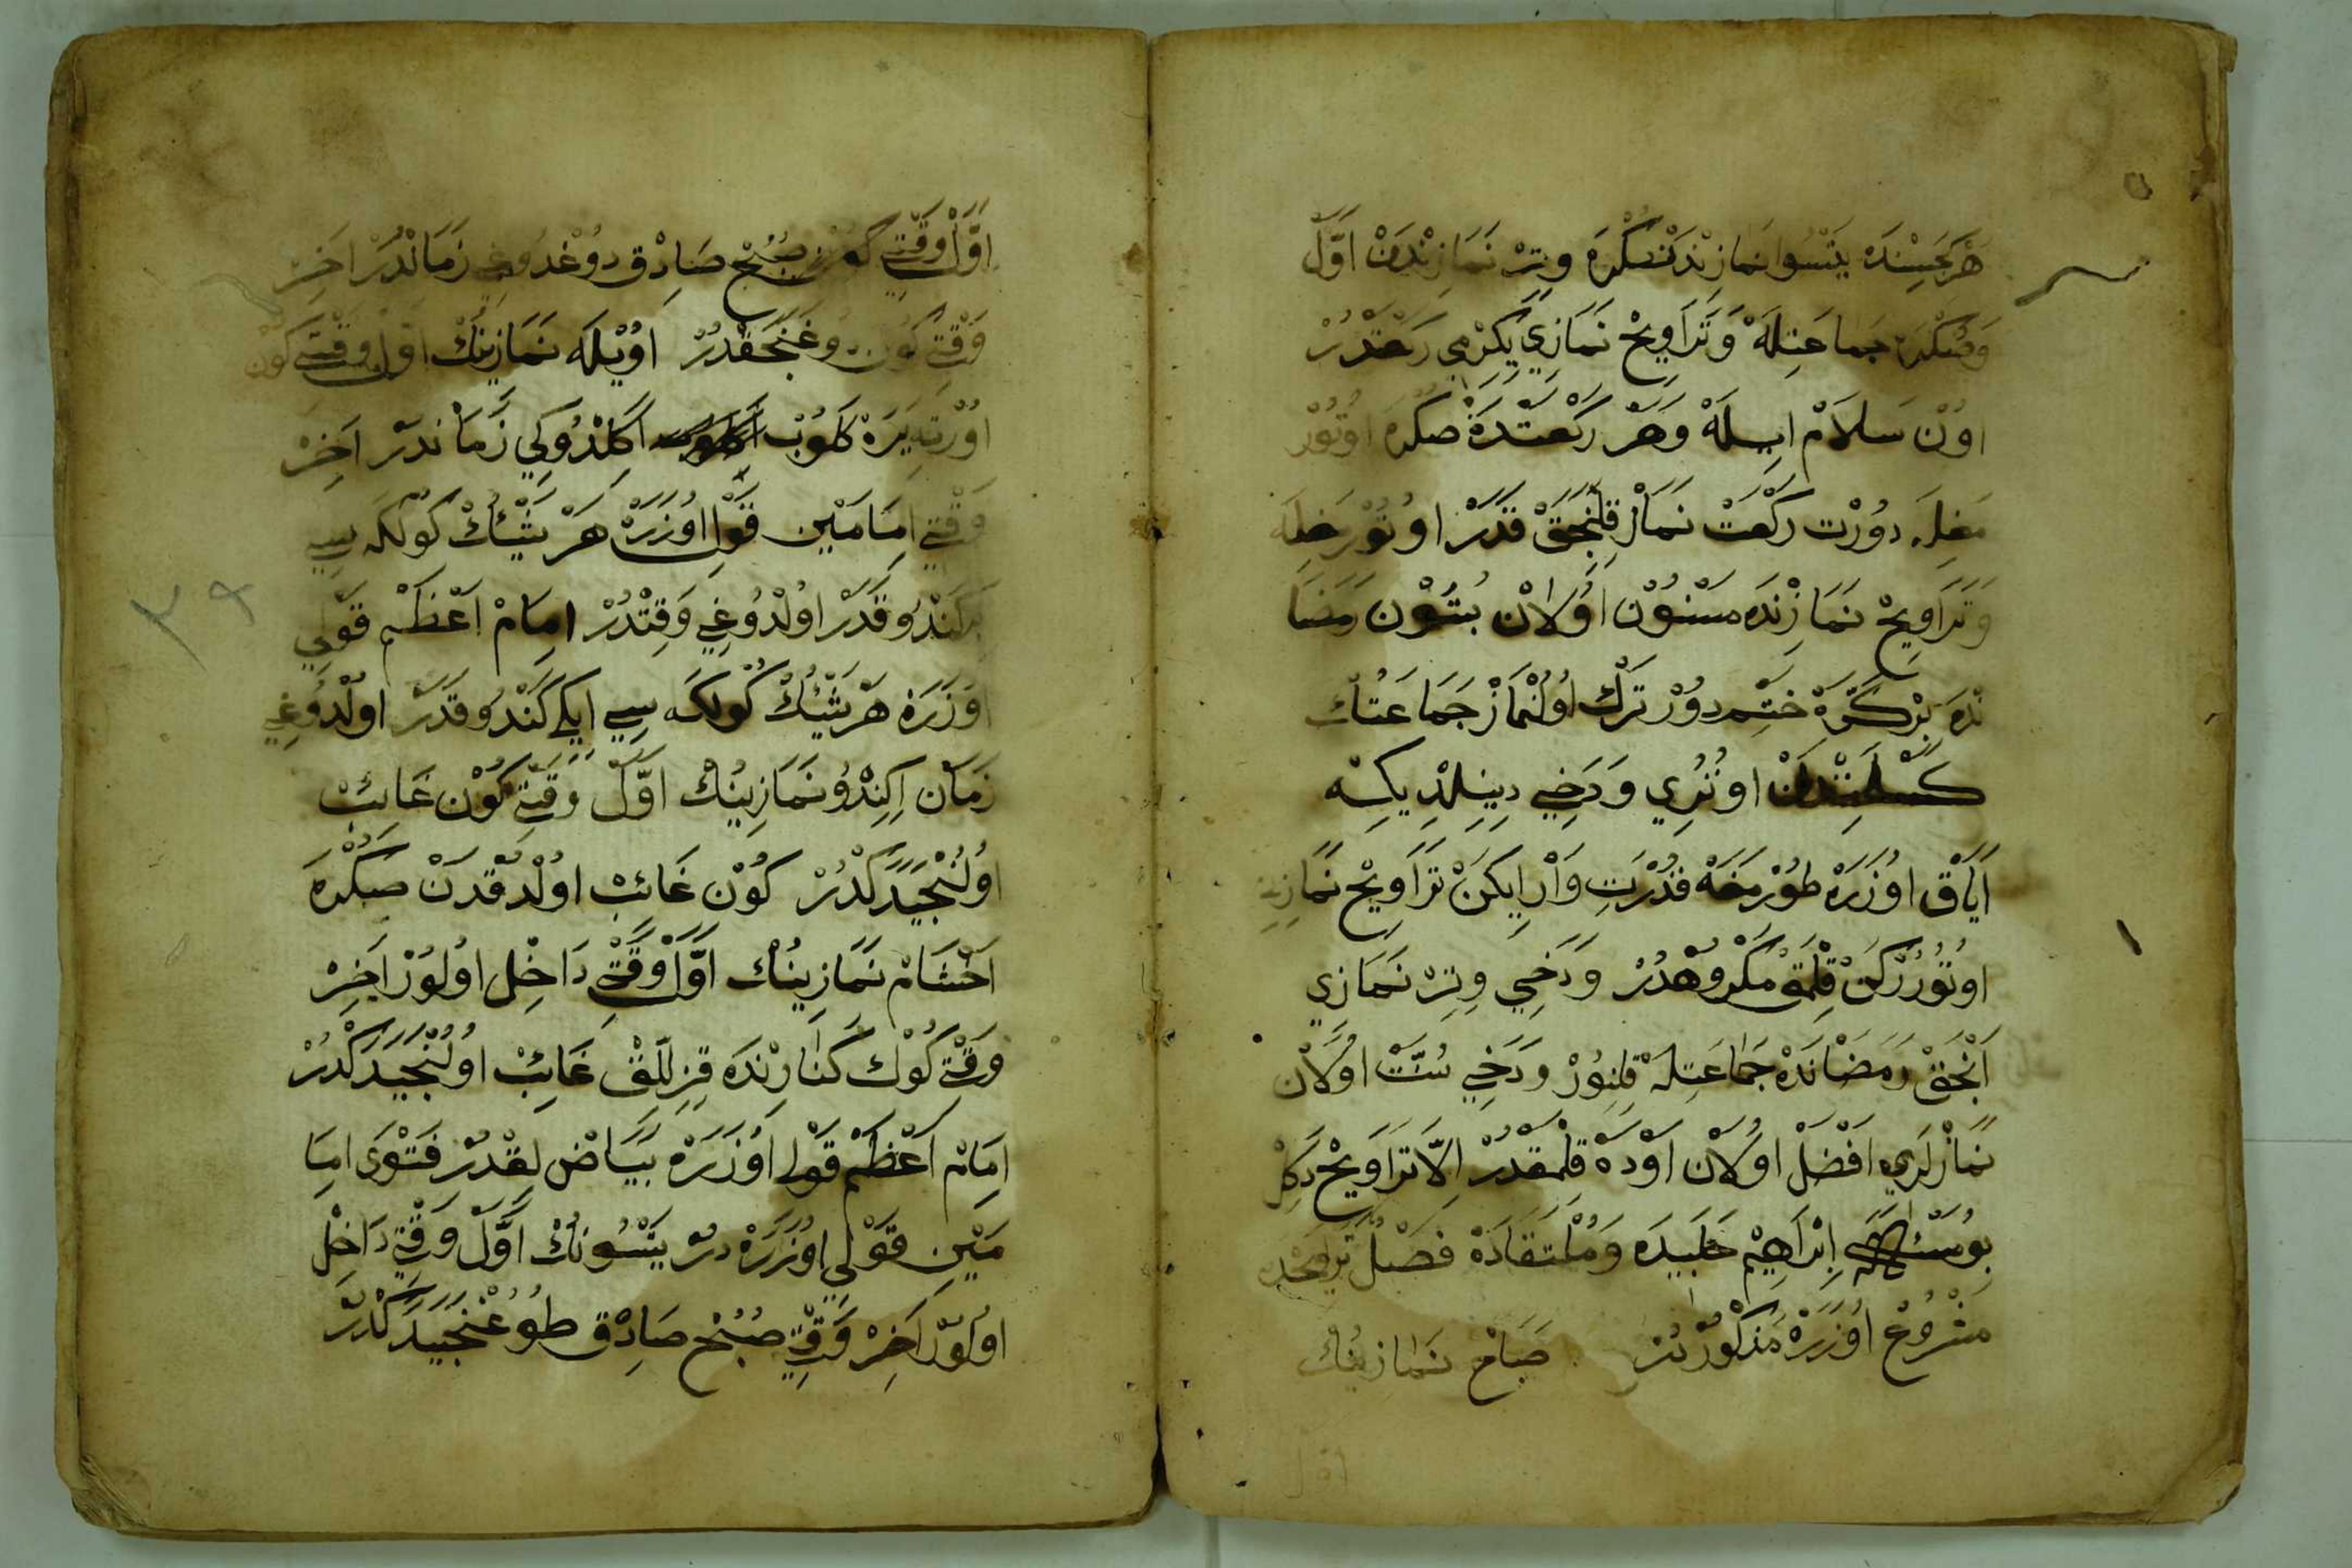 هَرْ كَجَسِنْدَه يَتْسُوا نَمَازِنْدَنْ صُكْرَه وِتِرْ نَمَازِنْدَنْ اوَّلْ
وَصُكْرَه جَمَاعَتِلَهْ وَتَرَاوِيحْ نَمَازِي يَكِرْمِي رَكْعَتْدُرْ
اوُنْ سَلَامْ ايِلَهْ وَهَرْ رَكْعَتْدَهْ صُكْرَه اوُتُوْر
مَغِلَه دوُرْت رَكْعَتْ نَمَازْ قِلِنْجَقْ قَدَرْ اوُتُوْرمَغِلَه
وَتَرَاوِيحْ نَمَازِنْدَه مَسْنُوْن اوُلَانْ بُتُوْن رَمَضَا
نْدَه بِرْ كَرَّهْ خَتِمْدوُرْ تَرْك اوُلُنْمَازْ جَمَاعَتُكْ
كَسَلِنْدَنْ اوُتُرِي وَدَخِي دِينِلْدِيكِنَه
اَيَاقْ اوُزَرَهْ طوُرْمَغَهْ قُدْرَتِ وَارْ ايِكَنْ تَرَاوِيحْ نَمَازِنِ
اوُتُوُرُرْكَنْ قِلْمَقْ مَكْروُهْدُرْ وَدَخِي وِتِرْ نَمَازِي
اَنْجَقْ رَمَضَانْدَهْ جَمَاعَتِلَهْ قِلِنوُرْ وَدَخِي سُنَّتْ اوُلَانْ
نَمَازْلَرِي اَفْضَلْ اوُلَانْ اَوْدَهْ قِلْمَقْدُرْ اِلَّا تَرَاوِيحْ دَكِلْ
بوُ مَسْئَلَه اِبْرَاهِيْم حَلَبِيدَه وَمُلْتَقَادَهْ فَصْلُ تَرَاوِيحْدَه
مَشْروُحْ اوُزَرَهْ مَذْكوُرْدُرْ صَبَاحْ نَمَازِينُكْ
اوَّلْ وَقْتِي صُبْحِ صَادِقْ دوُغْدوُغِي زَمَانْدُرْ اَخِرْ
وَقْتِي كوُن دوُغِنْجَقْدُرْ اوُيْلَه نَمَازِينُكْ اوَّلْ وَقْتِي كوُن
اوُرْتَه يَرَهْ كَلوُبْ اَكِلْدوُكِي زَمَانْدُرْ اَخِرْ
وَقْتِي اِمَامَيْن قَوْلِ اوُزَرَهْ هَرْ شَيْئُكْ كوُلْكَه سِي
كَنْدوُ قَدَرْ اوُلْدوُغِي وَقِتْدُرْ اِمَامْ اَعْظَمْ قَوْلِي
اوُزَرَه هَرْ شَيْئُكْ كوُلْكَه سِي ايِكِي كَنْدوُ قَدَرْ اوُلْدوُغِي
زَمَانْ اِكِنْدوُ نَمَازِينُكْ اوَّلْ وَقْتِي كوُن غَائِبْ
اوُلُنْجَيَدَكْدُرْ كوُن غَائِبْ اوُلْدُقْدَنْ صُكْرَه
اَخْشَامْ نَمَازِينُكْ اوَّلْ وَقْتِي دَاخِل اوُلوُرْ اَخِرْ
وَقْتِي كوُك كَنَارِنْدَه قِزِلْلِقْ غَائِبْ اوُلُنْجَيَدَكْدُرْ
اِمَامْ اَعْظَمْ قَوْلِي اوُزَرَهْ بَيَاضْ لِقْدُرْ فَتْوَى اِمَا
مَيْنِ قَوْلِي اوُزَرَهْ دُرْ يَتْسُونُكْ اوَّلْ وَقْتِي دَاخِلْ
اوُلوُرْ اَخِرْ وَقْتِي صُبْحِ صَادِقْ طوُغُنْجَيَدَكْدُرْ